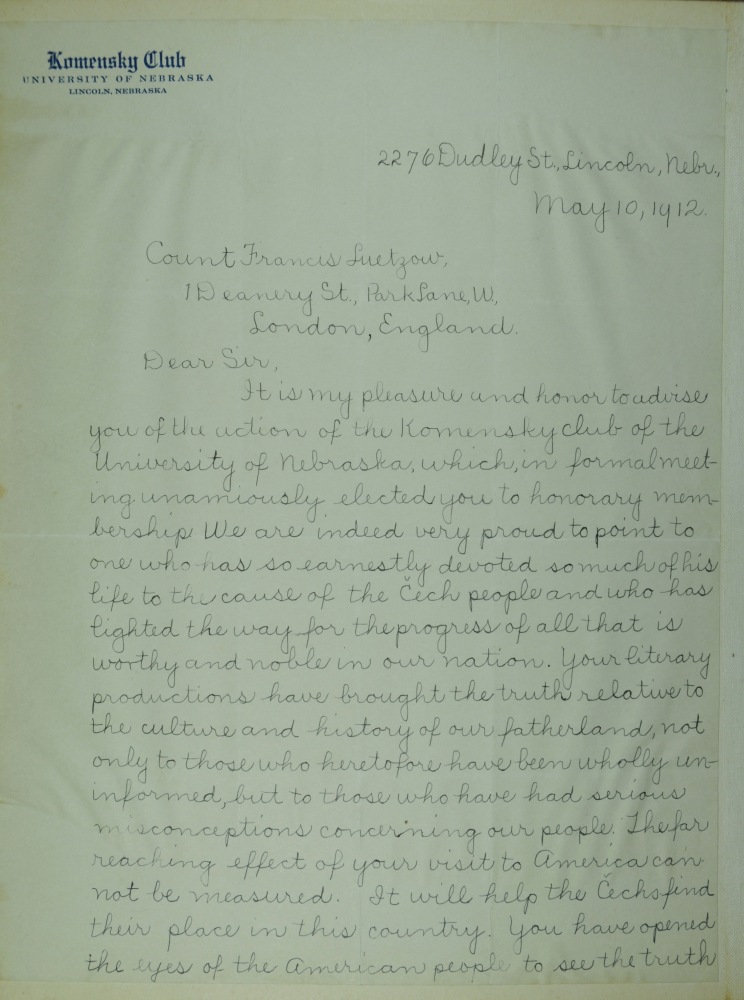 Komensky Club
UNIVERSITY OF NEBRASKA
LINCOLN, NEBRASKA
2276 Dudley St., Lincoln, Nebr.,
May 10, 1912.
Count Francis Luetzow,
1 Deanery St., Park Lane, W.,
London, England.
Dear Sir,
It is my pleasure and honor to advise
you of the action of the Komensky club of the
University of Nebraska, which, in formal meet-
ing unamiously elected you to honorary mem-
bership. We are indeed very proud to point to
one who has so earnestly devoted so much of his
life to the cause of the Čech people and who has
lighted the way for the progress of all that is
worthy and noble in our nation. Your literary
productions have brought the truth relative to
the culture and history of our fatherland, not
only to those who heretofore have been wholly un-
informed, but to those who have had serious
misconceptions concerning our people. The far
reaching effect of your visit to America can
not be measured. It will help the Čechs find
their place in this country. You have opened
the eyes of the American people to see the truth